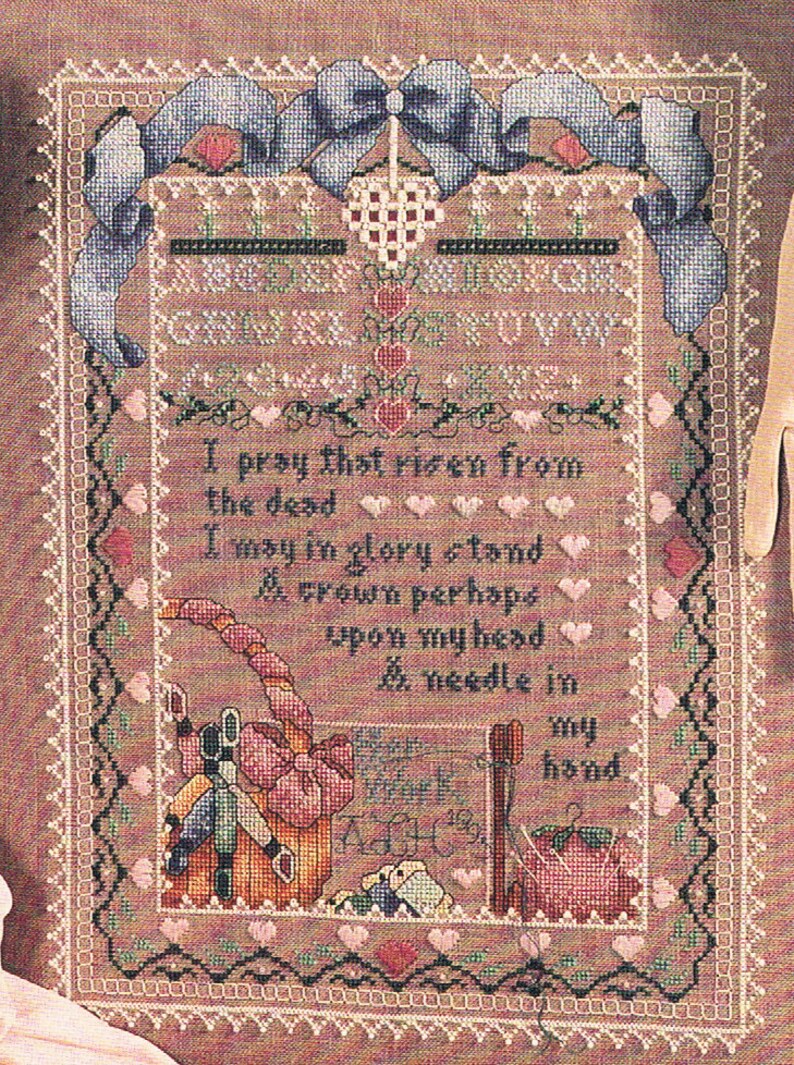 ABCDEF MNOPQR
GHIJKL STUVW
1·2·3·4·5 ·XYZ·
I pray that risen from
the dead
I may in glory stand
A crown perhaps
upon my head
A needle in
my
hand
Her
Work
ALH